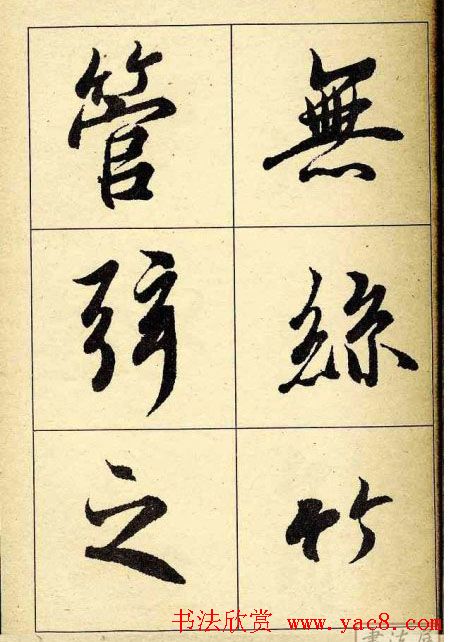 無絲竹
管弦之
书法欣赏 www.yac8.com